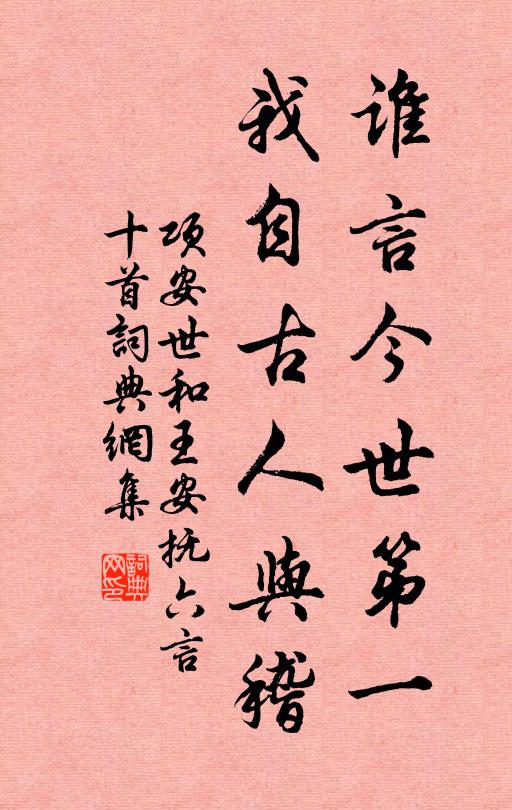 谁言今世第一
我自古人與稽
项安世和王安抚六言
十首詞典網集
詞典網印